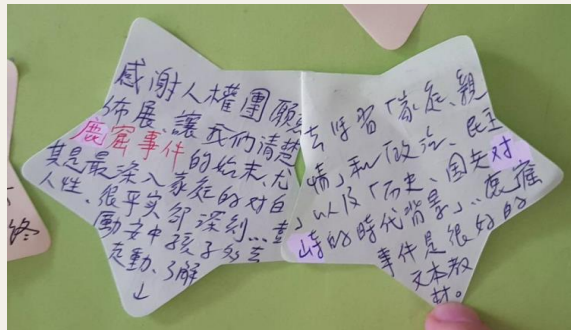 感謝人權團願
佈展、讓我們清楚
鹿窟事件的始末、尤
其是最深入家庭的對白
人性、很平實卻深刻…
勵女中孩子們
走動、了解
↓
去學習「家庭、親
情」和「政治、民主
」以及「历史、国失对
峙的時代背景」…鹿窟
事件是很好的
文本教
材。
终